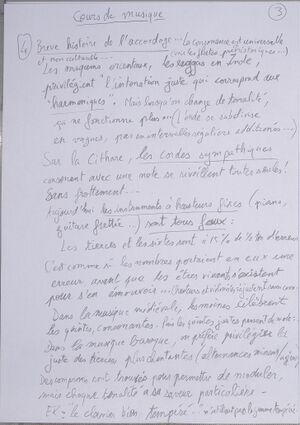 Cours de musique
3
4 Breve histoire de l'accordage... La consonance est universelle
et non culturelle... (voir les flûtes préhistoriques...)
Les maqams orientaux, les ragas en Inde,
privilégient "l'intonation juste qui correspond aux
"harmoniques". Mais lorsqu'on change de tonalité,
ça ne fonctionne plus... (L'inde se subdivise
en , par intervalles réguliers additionnés...)
Sur la Cithare, les cordes sympathiques
consonent avec une note se réveillent toutes seules!
Sans frottement...
Aujourd'hui les instruments à hauteurs fixes (piano,
guitare frettée...) sont tous faux:
Les tierces et les sixtes sont à 15% de ½ ton d'erreur
C'est comme si les nombres portaient en eux une
erreur, avant que les êtres vivants existent
pour s'en émouvoir...
Dans la musique médiévale, les moines célèbrent
les quintes, consonantes. Puis les quintes justes
Dans la musique baroque, on préfère privilégier les
juste des tierces plus chantantes (alternances mineur/majeur)
Des compromis ont trouvés pour permettre de moduler,
mais chaque tonalité a sa saveur particulière.
EX: "le clavier bien tempéré"... n'utilisait pas la gamme tempérée